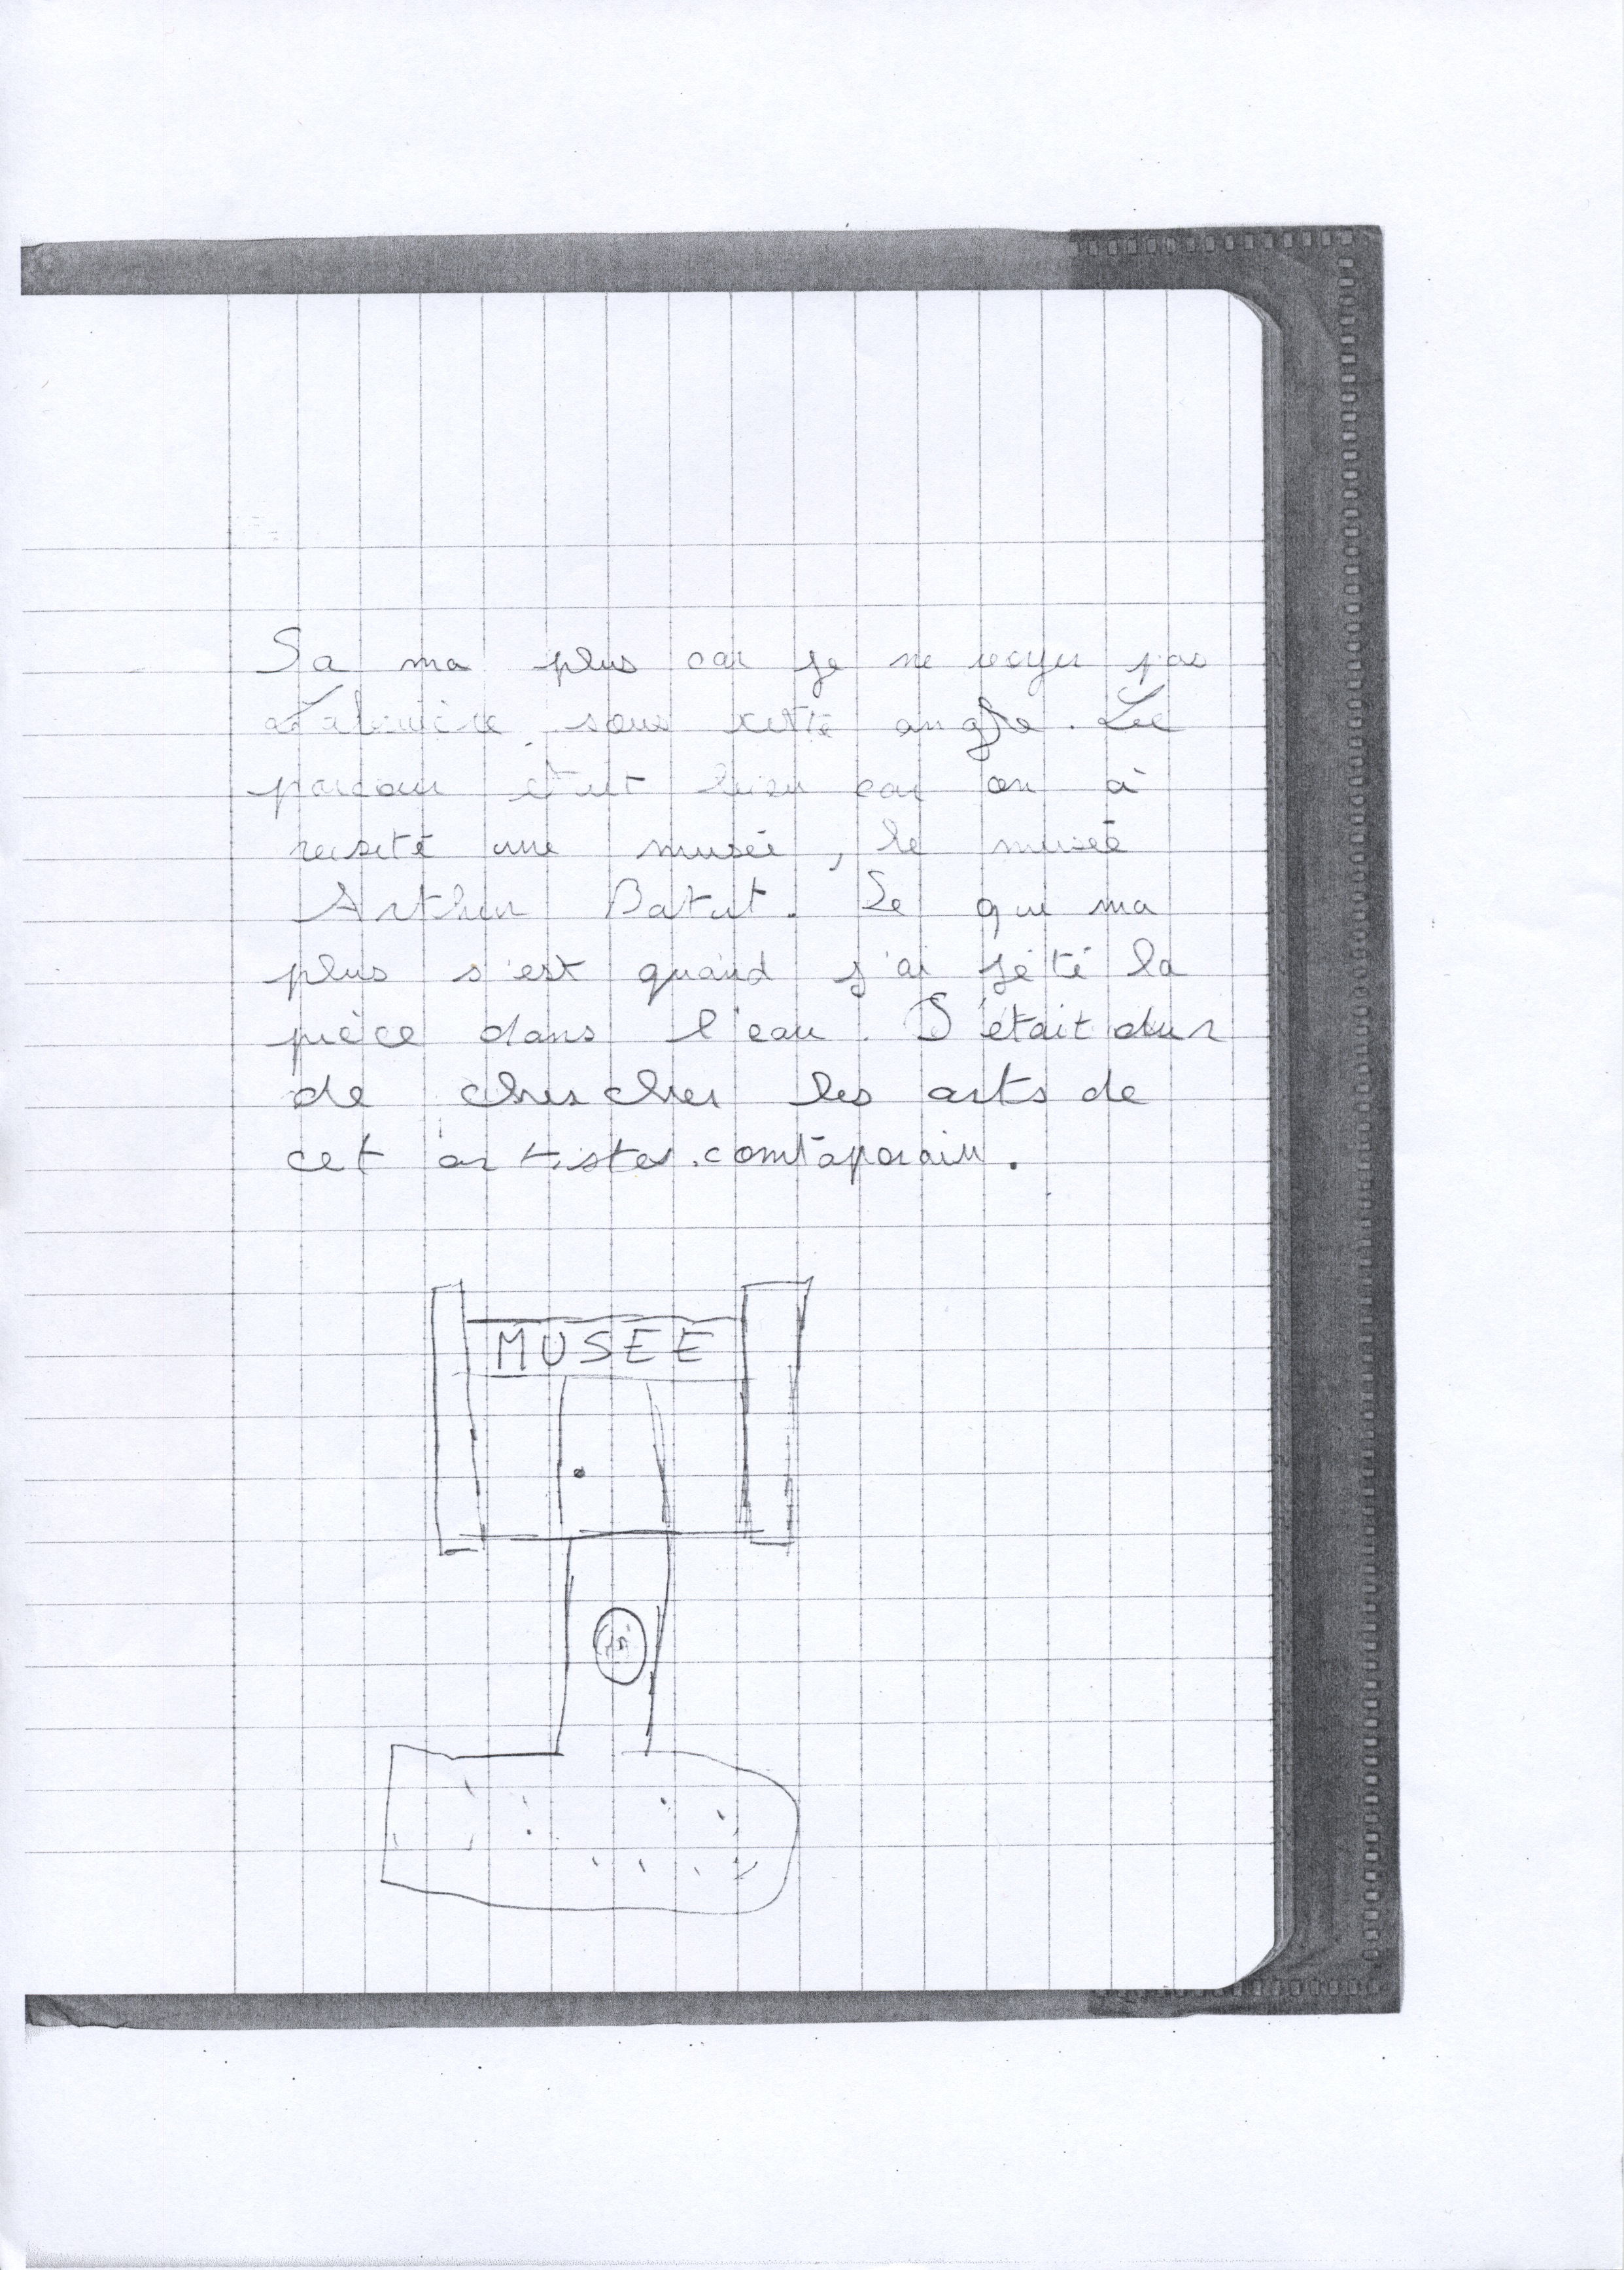 Sa ma plus car je ne voyer pas
Labruière sous cette angle. Le
parcour étut bien car on à
visité une musée, le musée
Arthur Batut. Se qui ma
plus s'est quand j'ai jété la
pièce dans l'eau. S'était dur
de chercher les arts de
cet artistes contaporain.
MUSEE